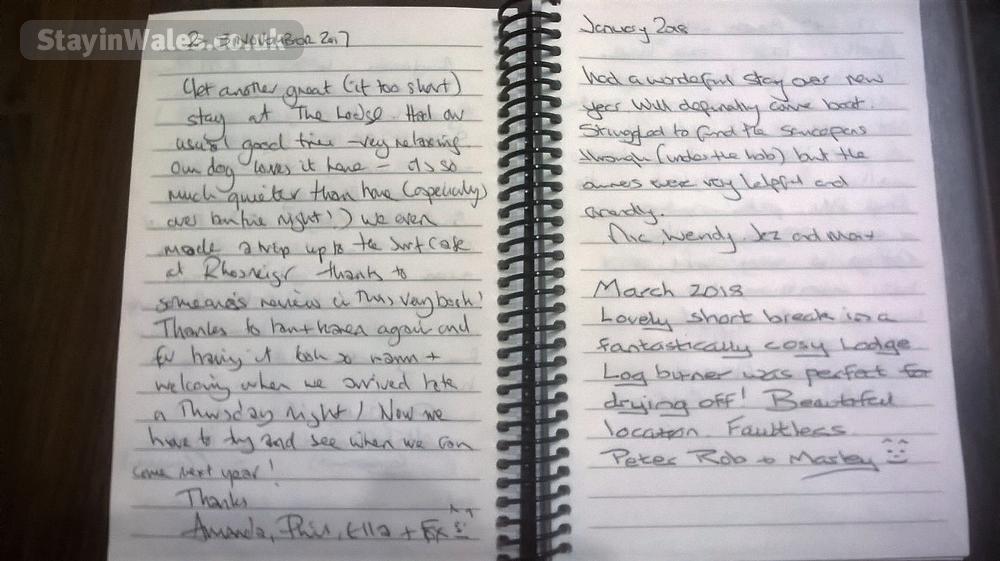 StayinWales.co.uk
NOVEMBER 2017
Yet another great (if too short)
stay at The Lodge. Had our
usual good time - very relaxing
our dog loves it here - it's so
much quieter than home (especially
over bonfire night!) We even
made a trip up to the surf cafe
at Rhosneigr thanks to
someone's review in this very book!
Thanks to Ian + Karen again and
for having it look so warm +
welcoming when we arrived late
on Thursday night! Now we
have to try and see when we can
come next year!
Thanks
Amanda, Phil, Ella +
January 2018
Had a wonderful stay over new
year Will definatly come back.
Struggled to find the saucepans
through (under the hob) but the
owners were very helpful and
friendly.
Nic, Wendy, Jez and Max
March 2018
Lovely short break in a
fantastically cosy Lodge
Log burner was perfect for
drying off! Beautiful
location. Faultless
Peter Rob + Marley